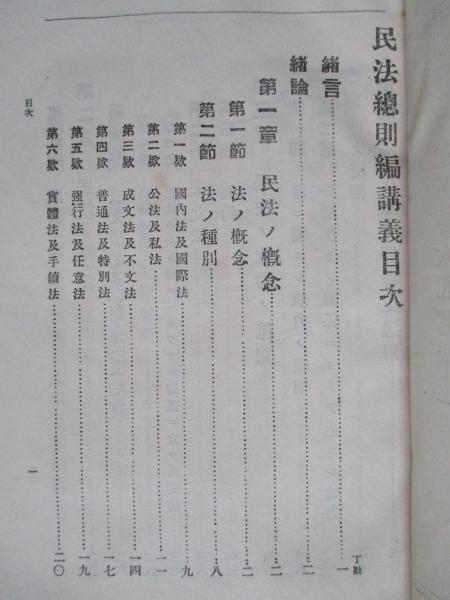 民法總則編講義目次
丁數
緒言……一
緒論……二
第一章 民法ノ概念……二
第一節 法ノ概念……二
第二節 法ノ種別……八
第一欵 國內法及國際法……九
第二欵 公法及私法……一一
第三欵 成文法及不文法……一四
第四欵 普通法及特別法……一七
第五欵 强行法及任意法……一九
第六欵 實體法及手續法……二〇
目次
一